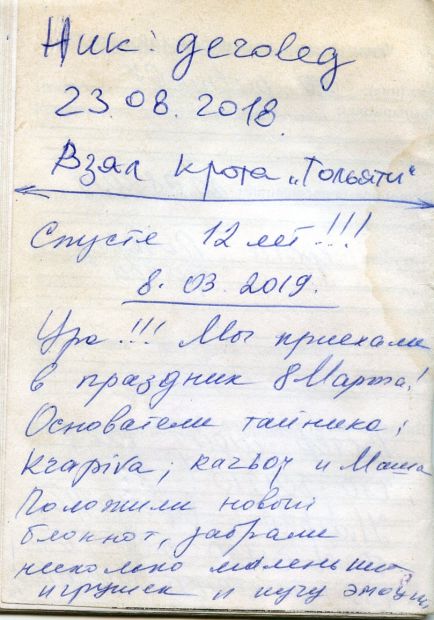 Ник: деговед
23.08.2018.
Взял крота „Тольяти“
Спустя 12 лет!!!
8.03.2019.
Ура!!! Мы приехали
в праздник 8 Марта!
Основатели тайника:
Krapiva; каzьоу и Маша
Положили новый
блокнот, забрали
несколько маленьких
игрушек и кучу эмоций